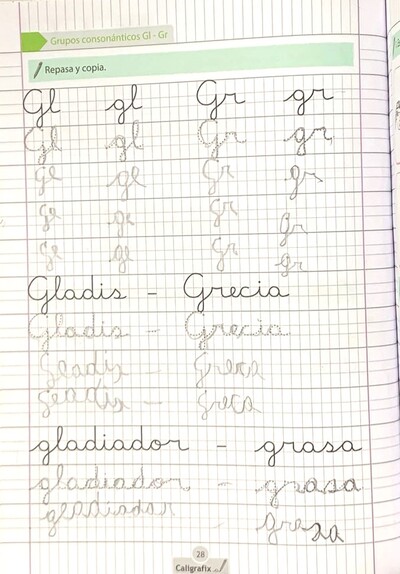 Grupos consonánticos Gl - Gr
Repasa y copia.
Gl gl Gr gr
Gl gl Gr gr
gl gl Gr gr
gl gl Gr gr
gl gl Gr gr
Gladis - Grecia
Gladis - Grecia
Geadis - Greca
Geadis - greca
gladiador - grasa
gladiador - grasa
gladiador - grasa
28
Caligrafix